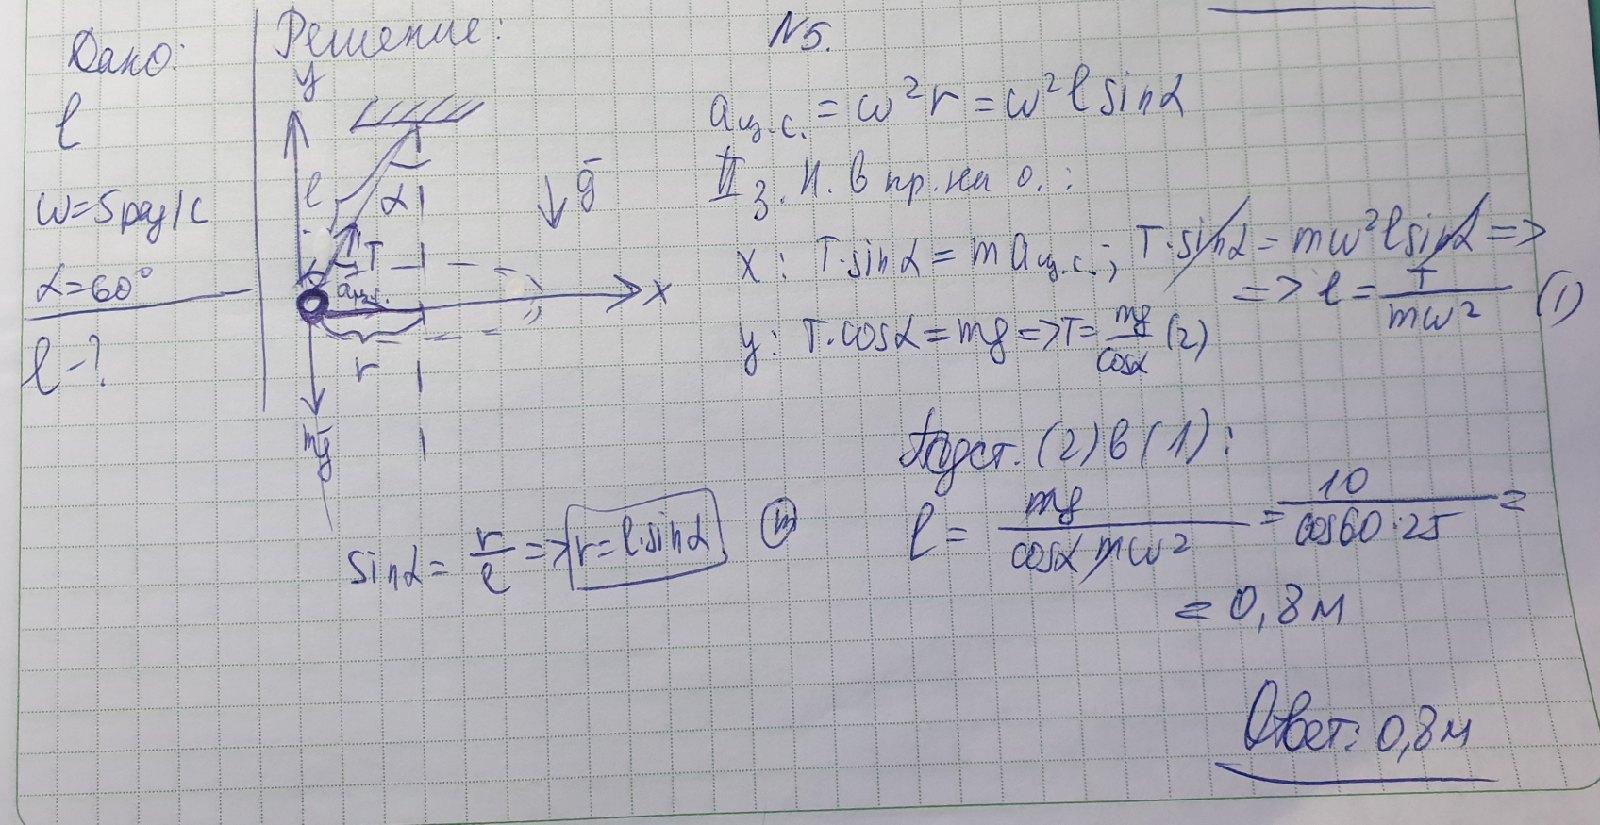 Дано:
l
ω=5рад/с
α=60°
l-?
Решение:
y
l
α
T
aц.с.
x
r
mg̅
g̅
sinα = r/l => r=l·sinα
N5.
aц.с. = ω²r = ω²l sinα
II з. Н. в пр. на о.:
x: T·sinα = m aц.с.; T·sinα = mω²l sinα =>
=> l = T/mω² (1)
y: T·cosα = mg => T= mg/cosα (2)
Подст. (2) в (1):
l = mg/cosα mω² = 10/cos60·25 =
= 0,8м
Ответ: 0,8м